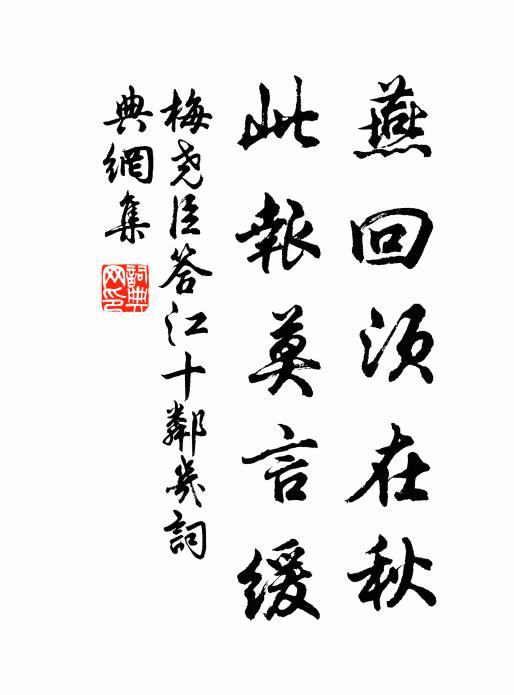 燕回須在秋
此報莫言緩
梅堯臣答江十鄰幾詞
典網集
詞典
网印